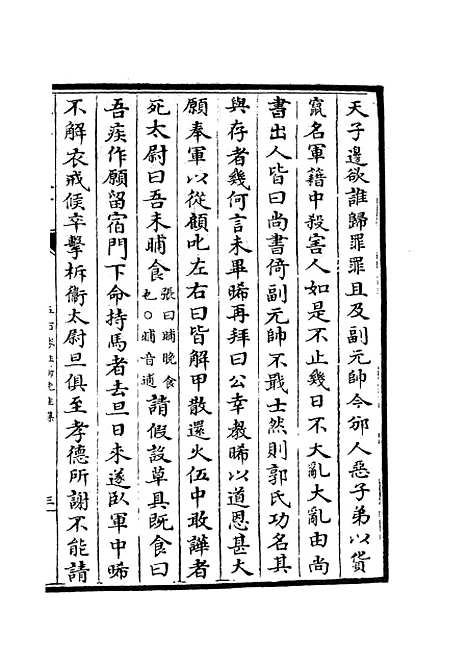 天子邊欲誰歸罪罪且及副元帥今邠人惡子弟以貨
竄名軍籍中殺害人如是不止幾日不大亂大亂由尚
書出人皆曰尚書倚副元帥不戢士然則郭氏功名其
與存者幾何言未畢晞再拜曰公幸教晞以道恩甚大
願奉軍以從顧叱左右曰皆解甲散還火伍中敢譁者
死太尉曰吾未晡食張曰晡晚食也○晡音逋請假設草具既食曰
吾疾作願留宿門下命持馬者去旦日來遂臥軍中晞
不解衣戒候卒擊柝衛太尉旦俱至孝德所謝不能請
五百家註柳先生集
三